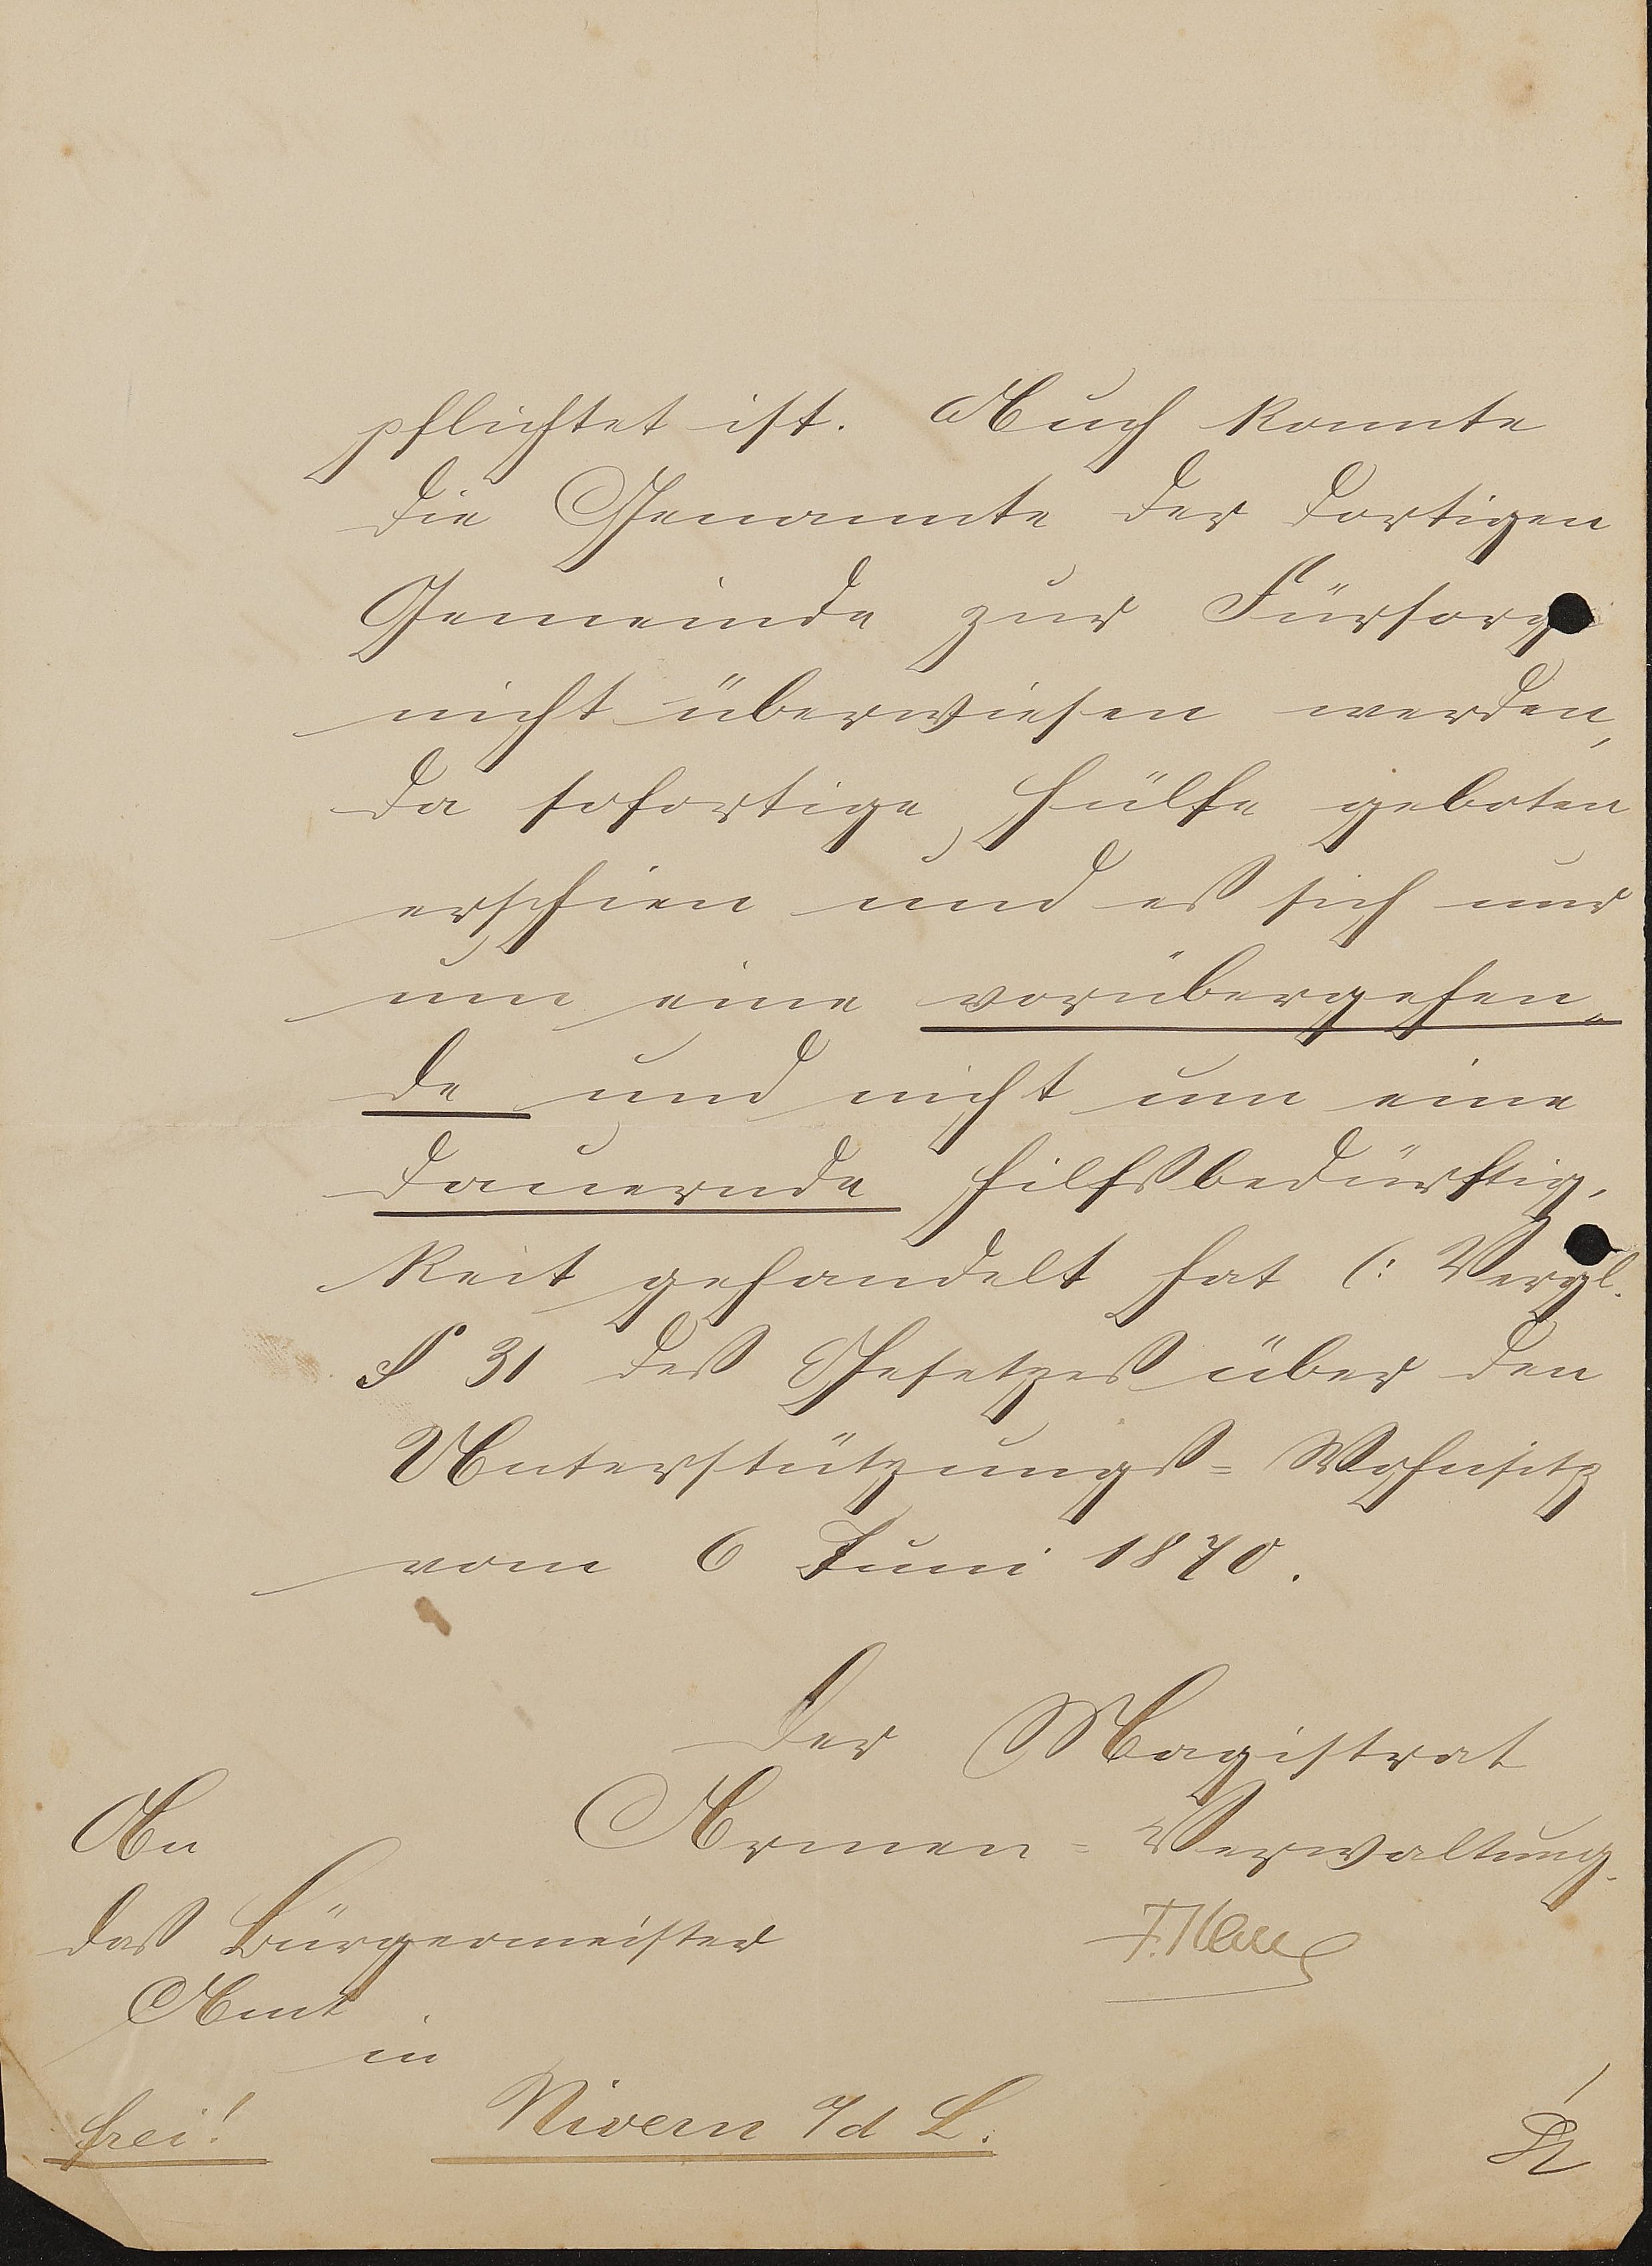 pflichtet ist. Auch konnte
die Genannte der dortigen
Gemeinde zur Fürsorge
nicht überwiesen werden,
da sofortige Hülfe geboten
erschien und es sich nur
um eine vorübergehen„
de und nicht um eine
dauernde Hilfsbedürftig„
keit gehandelt hat (: Vergl.
§ 31 des Gesetzes über den
Unterstützungs= Wohnsitz
vom 6 Juni 1870.
Der Magistrat
Armen=Verwaltung.
An
das Bürgermeister
Amt
in
Nivern a/d L.
frei!